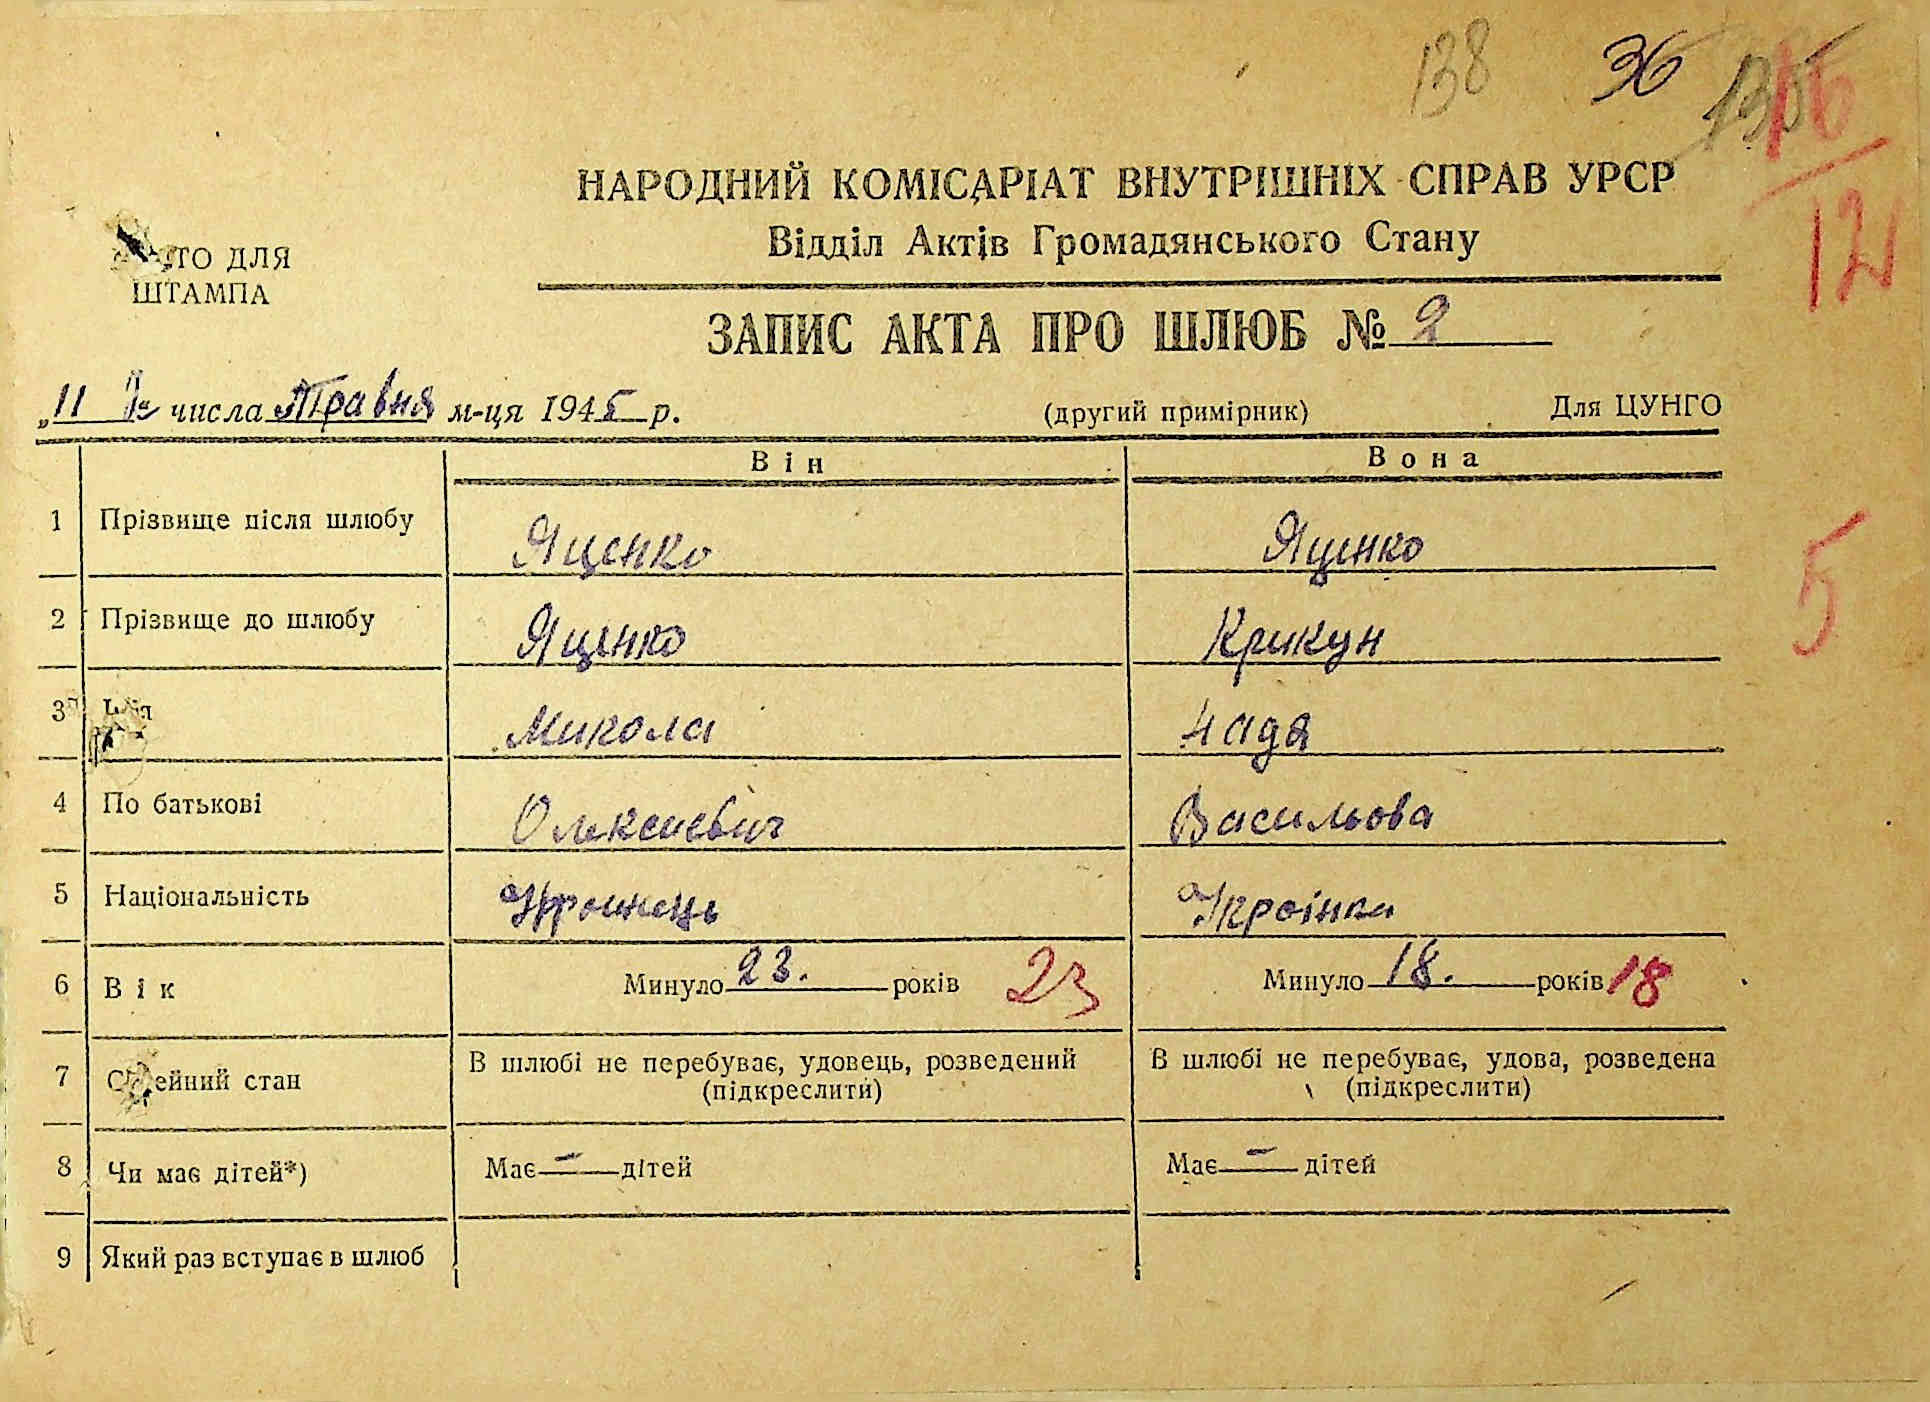 138 36 135 16
НАРОДНИЙ КОМІСАРІАТ ВНУТРІШНІХ СПРАВ УРСР
12
Відділ Актів Громадянського Стану
ТО ДЛЯ
ШТАМПА
ЗАПИС АКТА ПРО ШЛЮБ № 2
„11 числа Травня м-ця 1945 р. (другий примірник) Для ЦУНГО
Він Вона
1 Прізвище після шлюбу Яценко Яценко
5
2 Прізвище до шлюбу Яценко Крикун
3 Микола Надя
4 По батькові Олексиевич Васильова
5 Національність Украинець Украінка
6 Вік Минуло 23. років 23 Минуло 18. років 18
7 ейний стан В шлюбі не перебуває, удовець, розведений В шлюбі не перебуває, удова, розведена
(підкреслити) (підкреслити)
8 Чи має дітей*) Має — дітей Має — дітей
9 Який раз вступає в шлюб